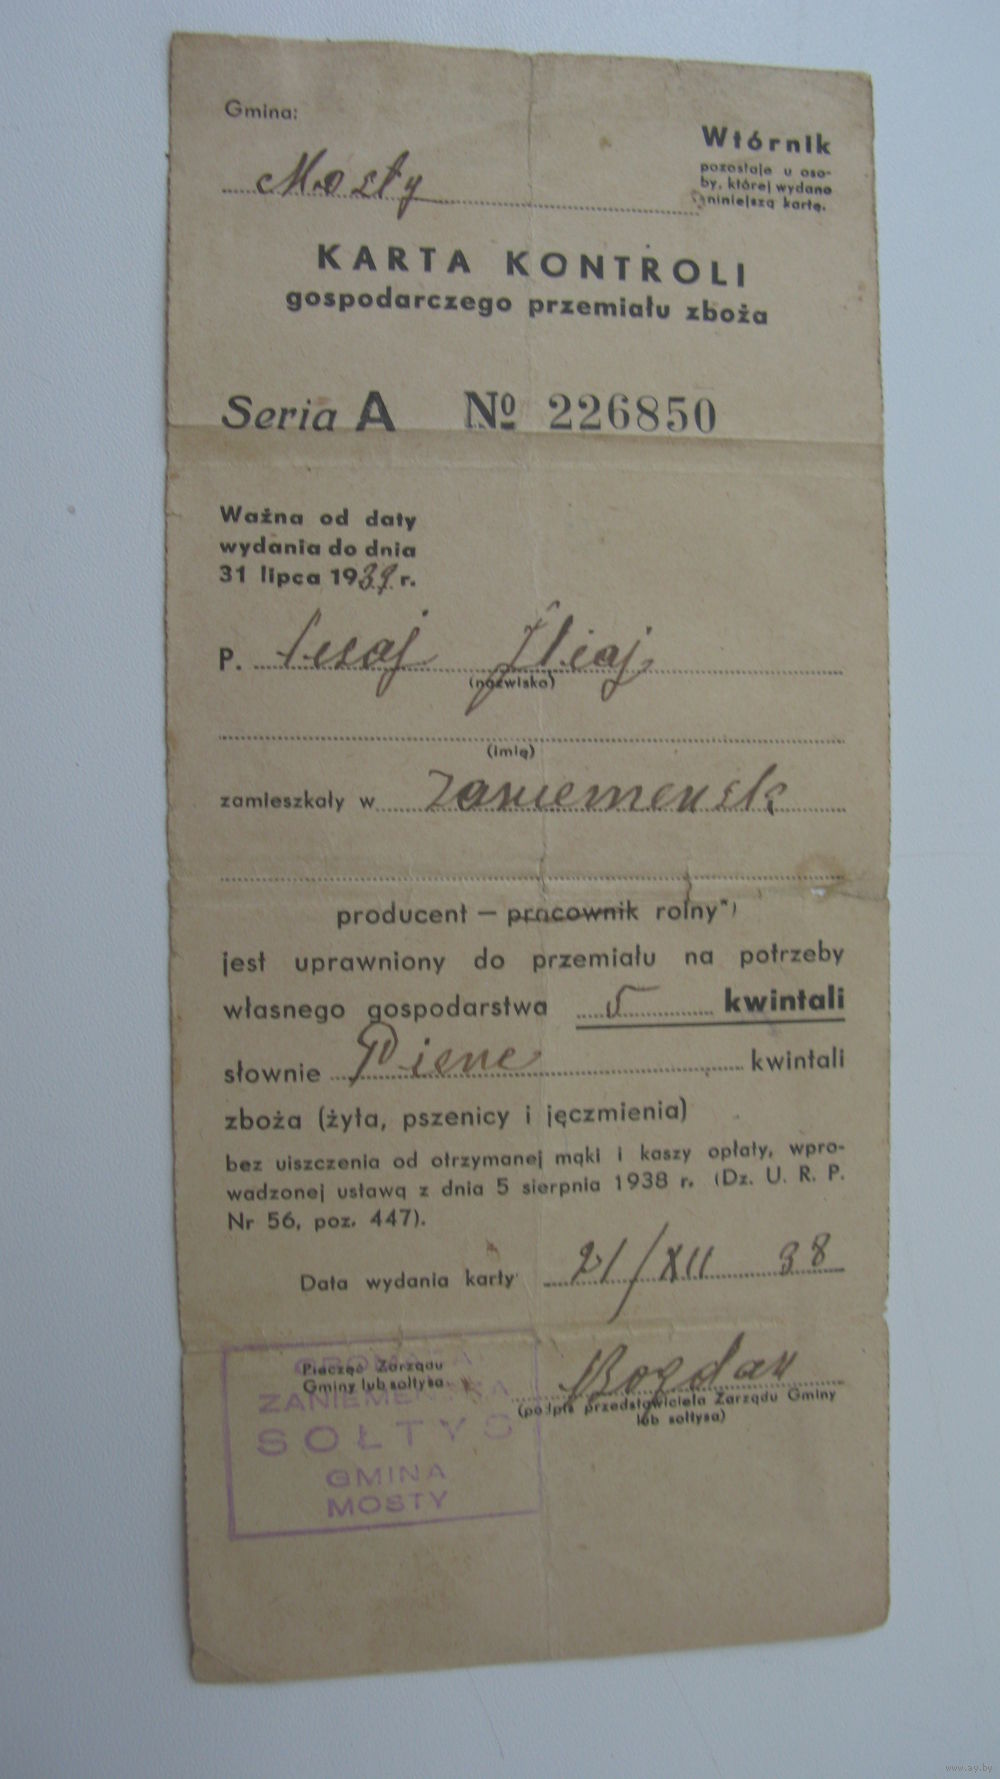 Gmina:
Mosty
Wtórnik
pozostaje u oso-
by, której wydano
niniejszą kartę.
KARTA KONTROLI
gospodarczego przemiału zboża
Seria A № 226850
Ważna od daty
wydania do dnia
31 lipca 1939 r.
P.
(nazwisko)
(imię)
zamieszkały w Zaniemensk
producent — pracownik rolny*)
jest uprawniony do przemiału na potrzeby
własnego gospodarstwa 5 kwintali
słownie kwintali
zboża (żyta, pszenicy i jęczmienia)
bez uiszczenia od otrzymanej mąki i kaszy opłaty, wpro-
wadzonej ustawą z dnia 5 sierpnia 1938 r. (Dz. U. R. P.
Nr 56, poz. 447).
Data wydania karty 21/XII 38
Pieczęć Zarządu
Gminy lub sołtysa
Bogdan
(podpis przedstawiciela Zarządu Gminy
lub sołtysa)
SOŁTYS
GMINA
MOSTY
www.ay.by